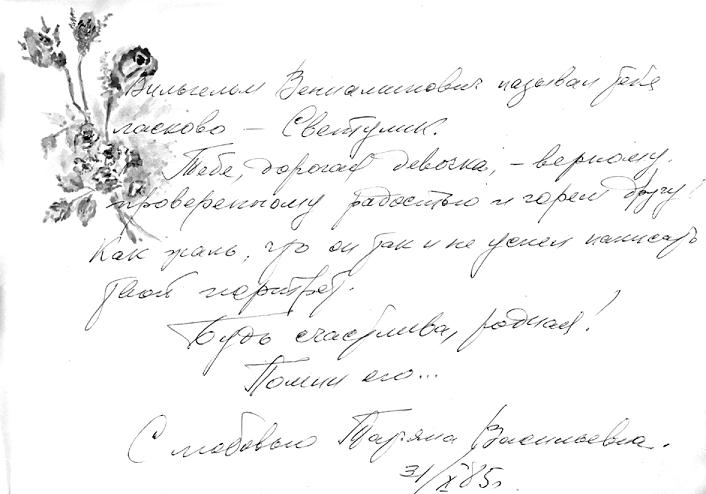 Вильгельм Вениаминович называл тебя
ласково — Светулик.
Тебе, дорогая девочка, — верному,
проверенному радостью и горем другу!
Как жаль, что он так и не успел написать
твой портрет.
Будь счастлива, родная!
Помни его...
С любовью Татьяна Васильевна.
31/X 85г.